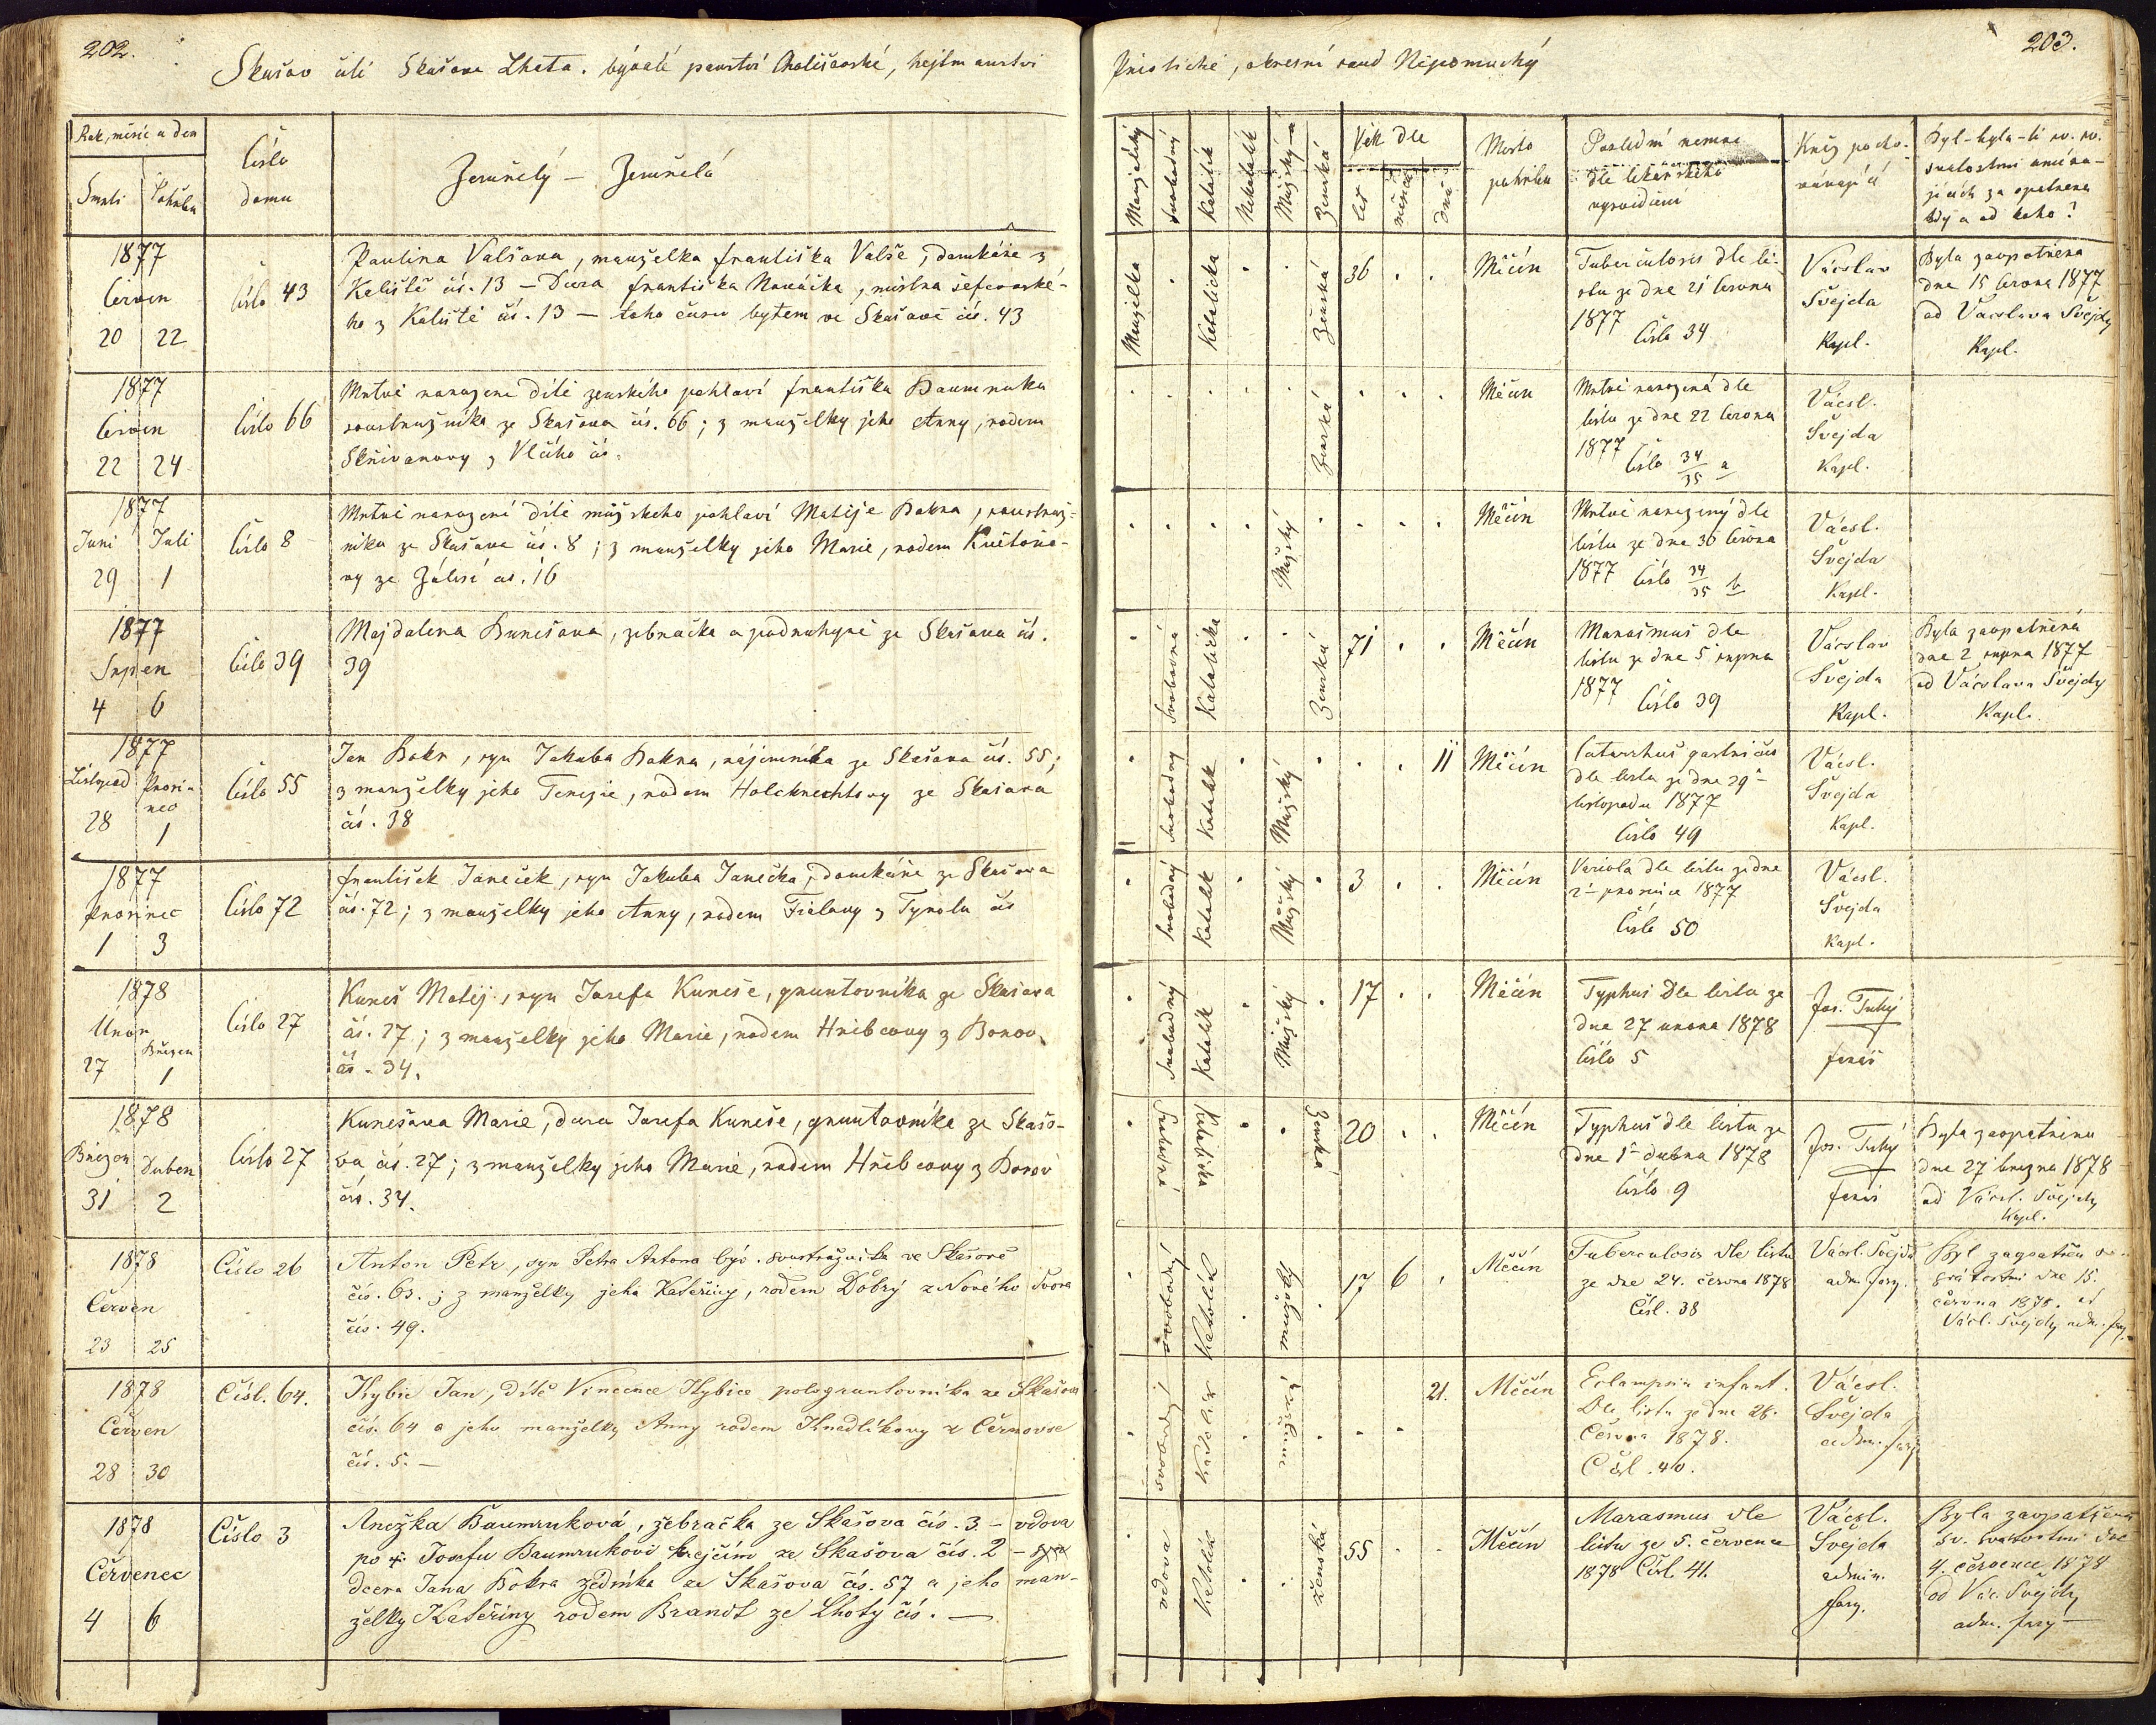 202.
Skašov čili Skašova Lhota. bývalé panství Chotěšovské, hejtmanství
Rok, měsíc a den
Smrti
Pohřbu
Číslo
domu
Zemřelý — Zemřelá
1877
Červen
20 22
číslo 43
Paulina Valšova, manželka Františka Valše, domkáře z
Kaliště čís. 13 — Dcera Františka Nováčka, mistra ševcovské-
ho z Kaliště čís. 13 — toho času bytem ve Skašově čís. 43
1877
Červen
22 24
Číslo 66
Mrtvě narozené dítě ženského pohlaví Františka Baumruka
soustružníka ze Skašova čís. 66; z manželky jeho Anny, rodem
Skřivanovy z Vlčího čís.
1877
Juni Juli
29 1
Číslo 8
Mrtvě narozené dítě mužského pohlaví Matěje Bokra, soustruž-
níka ze Skašova čís. 8; z manželky jeho Marie, rodem Květoňo-
vy ze Zálesí čís. 16
1877
Srpen
4 6
Číslo 39
Majdalena Kunešova, žebračka a podruhyně ze Skašova čís.
39
1877
Listopad Prosi-
nec
28 1
Číslo 55
Jan Bokr, syn Jakuba Bokra, nájemníka ze Skašova čís. 55;
z manželky jeho Terezie, rodem Holcknechtovy ze Skašova
čís. 38
1877
Prosinec
1 3
Číslo 72
František Janeček, syn Jakuba Janečka, domkáře ze Skašova
čís. 72; z manželky jeho Anny, rodem Fialovy z Tyrolu čís
1878
Únor
Březen
27 1
Číslo 27
Kuneš Matěj, syn Josefa Kuneše, gruntovníka ze Skašova
čís. 27; z manželky jeho Marie, rodem Hříbcovy z Borov
čís. 34.
1878
Březen Duben
31 2
Číslo 27
Kunešova Marie, dcera Josefa Kuneše, gruntovníka ze Skašo-
va čís. 27; z manželky jeho Marie, rodem Hříbcovy z Borov
čís. 34.
1878
Červen
23 25
Číslo 26
Anton Petr, syn Petra Antona býv. soustružníka ve Skašově
čís. 63.; z manželky jeho Kateřiny, rodem Dobrý z Nového Dvora
čís. 49.
1878
Červen
28 30
Čísl. 64.
Kybic Jan, dítě Vincence Kybice pologruntovníka ze Skašova
čís. 64 a jeho manželky Anny rodem Knedlíkovy z Černovse
čís. 5. —
1878
Červenec
4 6
Číslo 3
Anežka Baumruková, žebračka ze Skašova čís. 3. — vdova
po Josefu Baumrukovi krejčím ze Skašova čís. 2 —
dcera Jana Bokra zedníka ze Skašova čís. 57 a jeho man-
želky Kateřiny rodem Brandt ze Lhoty čís. —
203.
Přeštické, okresní soud Nepomucký
Manželský
Svobodný
Katolík
Nekatolík
Mužský
Ženská
Věk dle
let
měsíců
dnů
Místo
pohřbu
Poslední nemoc
dle lékařského
vysvědčení
Kněz pocho-
vávající
Byl-byla-li sv. sv.
svátostmi umíra-
jících za opatřena
kdy a od koho?
Manželka Katolička Ženská 36 Měčín
Tuberculosis dle li-
stu ze dne 21 června
1877
Číslo 34
Vácslav
Švejda
Kapl.
Byla zaopatřena
dne 15 června 1877
od Vácslava Švejdy
Kapl.
Ženská Měčín
Mrtvě narozená dle
listu ze dne 22 června
1877
Číslo 34/35 a
Vácsl.
Švejda
Kapl.
Mužský Měčín
Mrtvě narozený dle
listu ze dne 30 června
1877 Číslo 34/35 b
Vácsl.
Švejda
Kapl.
Svobodná Katolička Ženská 71 Měčín
Marasmus dle
listu ze dne 5 srpna
1877
Číslo 39
Vácslav
Švejda
Kapl.
Byla zaopatřena
dne 2 srpna 1877
od Vácslava Švejdy
Kapl.
Svobodný Katolík Mužský 11 Měčín
Catarrhus gastricus
dle listu ze dne 29
listopadu 1877
Číslo 49
Vácsl.
Švejda
Kapl.
Svobodný Katolík Mužský 3 Měčín
Variola dle listu ze dne
2 prosince 1877
Číslo 50
Vácsl.
Švejda
Kapl.
Svobodný Katolík Mužský 17 Měčín
Typhus dle listu ze
dne 27 února 1878
Číslo 5
Jos. Tichý
farář
Svobodná Katolička Ženská 20 Měčín
Typhus dle listu ze
dne 1 dubna 1878
Číslo 9
Jos. Tichý
farář
Byla zaopatřena
dne 27 března 1878
od Vácsl. Švejdy
Kapl.
svobodný Katolík mužský 17 6 Měčín
Tuberculosis dle listu
ze dne 24. června 1878
Čísl. 38
Vácsl. Švejda
adm. fary.
Byl zaopatřen sv.
svátostmi dne 15.
června 1878. od
Václ. Švejdy adm. fary.
svobodný Katolík mužský 21. Měčín
Eclampsia infant.
Dle listu ze dne 28.
Června 1878.
Čísl. 40.
Vácsl.
Švejda
adm. fary
vdova Katolík ženská 55 Měčín
Marasmus dle
listu ze 5. července
1878 Čísl. 41.
Vácsl.
Švejda
admin.
fary.
Byla zaopatřena
sv. svátostmi dne
4. července 1878
od Vác. Švejdy
adm. fary —